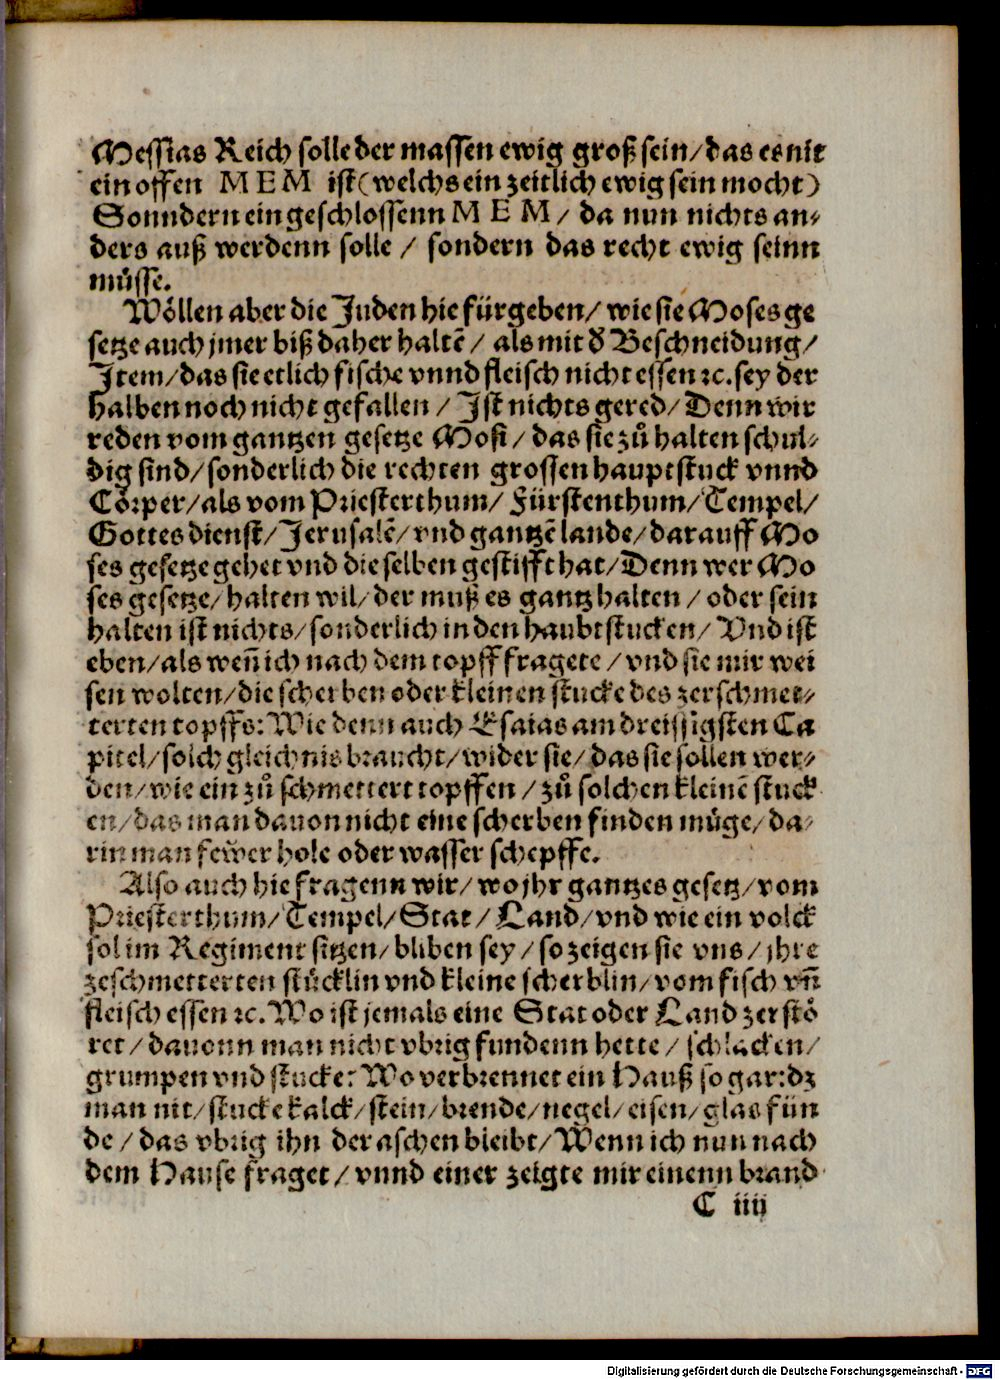 Messias Reich solle der massen ewig groß sein/das es nit
ein offen MEM ist(welchs ein zeitlich ewig sein mocht)
Sonndern ein geschlossenn MEM/ da nun nichts an-
ders auß werdenn solle / sondern das recht ewig seinn
můsse.
Wöllen aber die Juden hie fürgeben/ wie sie Moses ge
setze auch jmer biß daher haltē / als mit ď Beschneidung/
Item/das sie etlich fische vnnd fleisch nicht essen ꝛc. sey der
halben noch nicht gefallen / Ist nichts gered/ Denn wir
reden vom gantzen gesetze Mosi/ das sie zů halten schul-
dig sind/sonderlich die rechten grossen hauptstuck vnnd
Cörper/als vom Priesterthum/ Fürstenthum/Tempel/
Gottes dienst/Jerusalē/vnd gantzē lande/darauff Mo
ses gesetze gehet vnd dieselben gestifft hat/Denn wer Mo
ses gesetze/ halten wil/der muß es gantz halten / oder sein
halten ist nichts/sonderlich in den haubtstucken/ Vnd ist
eben/als weñ ich nach dem topff fragete/vnd sie mir wei
sen wolten/die scherben oder kleinen stucke des zerschmet-
terten topffs: Wie denn auch Esaias am dreissigsten Ca
pitel/solch gleichnis braucht/wider sie/das sie sollen wer-
den/wie ein zů schmettert topffen /zů solchen kleinē stuck
en/das man dauon nicht eine scherben finden müge/da-
rin man fewer hole oder wasser schepffe.
Also auch hie fragenn wir/wo jhr gantzes gesetz/vom
Priesterthum/Tempel/Stat/Land/vnd wie ein volck
sol im Regiment sitzen/bliben sey/so zeigen sie vns/jhre
zeschmetterten stücklin vnd kleine scherblin/vom fisch vñ
fleisch essen ꝛc. Wo ist jemals eine Stat oder Land zerstö
ret / dauonn man nicht vbrig fundenn hette/ schlacken/
grumpen vnd stucke: Wo verbrennet ein Hauß so gar:dz
man nit/stucke kalck/stein/brende/negel/eisen/glas fün
de /das vbrig ihn der aschen bleibt/Wenn ich nun nach
dem Hause fraget/vnnd einer zeigte mir einenn brand
C iiij
Digitalisierung gefördert durch die Deutsche Forschungsgemeinschaft - DFG